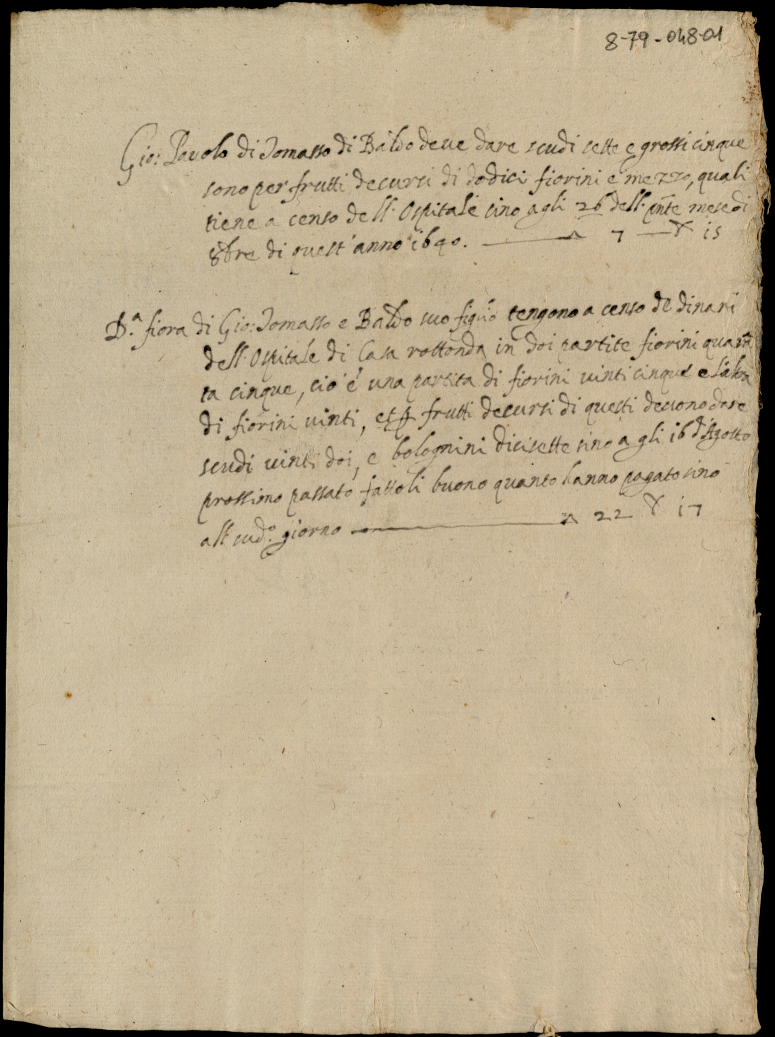 8-79-048-01
Gio: Pavolo di Tomasso di Baldo deve dare scudi sette e grossi cinque
sono per frutti decursi di dodici fiorini e mezzo, quali
tiene a censo dell'Ospitale sino agli 26 dell pñte mese di
8bre di quest'anno 1640. 7 15
D.ª fiora di Gio: Tomasso e Baldo suo figlio tengono a censo de dinari
dell'Ospitale di Casa rottonda in doi partite fiorini quarã
ta cinque, cio è una partita di fiorini vinti cinque e l'altra
di fiorini vinti, et p frutti decursi di questi devono dare
scudi vinti doi, e bolognini dicisette sino a gli 16 d'Agosto
prossimo passato fattoli buono quanto hanno pagato sino
all sud.º giorno 22 17